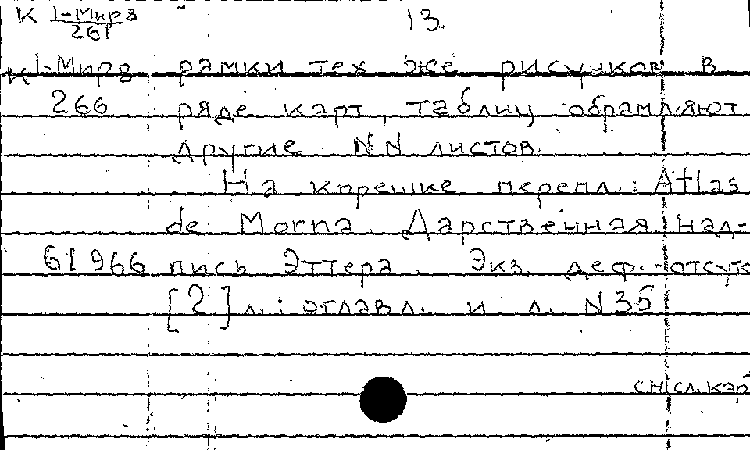 К 1-Мира 13.
261
К 1-Мира рамки тех же рисунков в
266 ряде карт, таблиц обрамляют
другие NN листов.
На корешке перепл.: Atlas
de Morna. Дарственная над-
61966 пись Эттера. Экз. деф.: отсутс
[2] л.: оглавл. и л. N 35